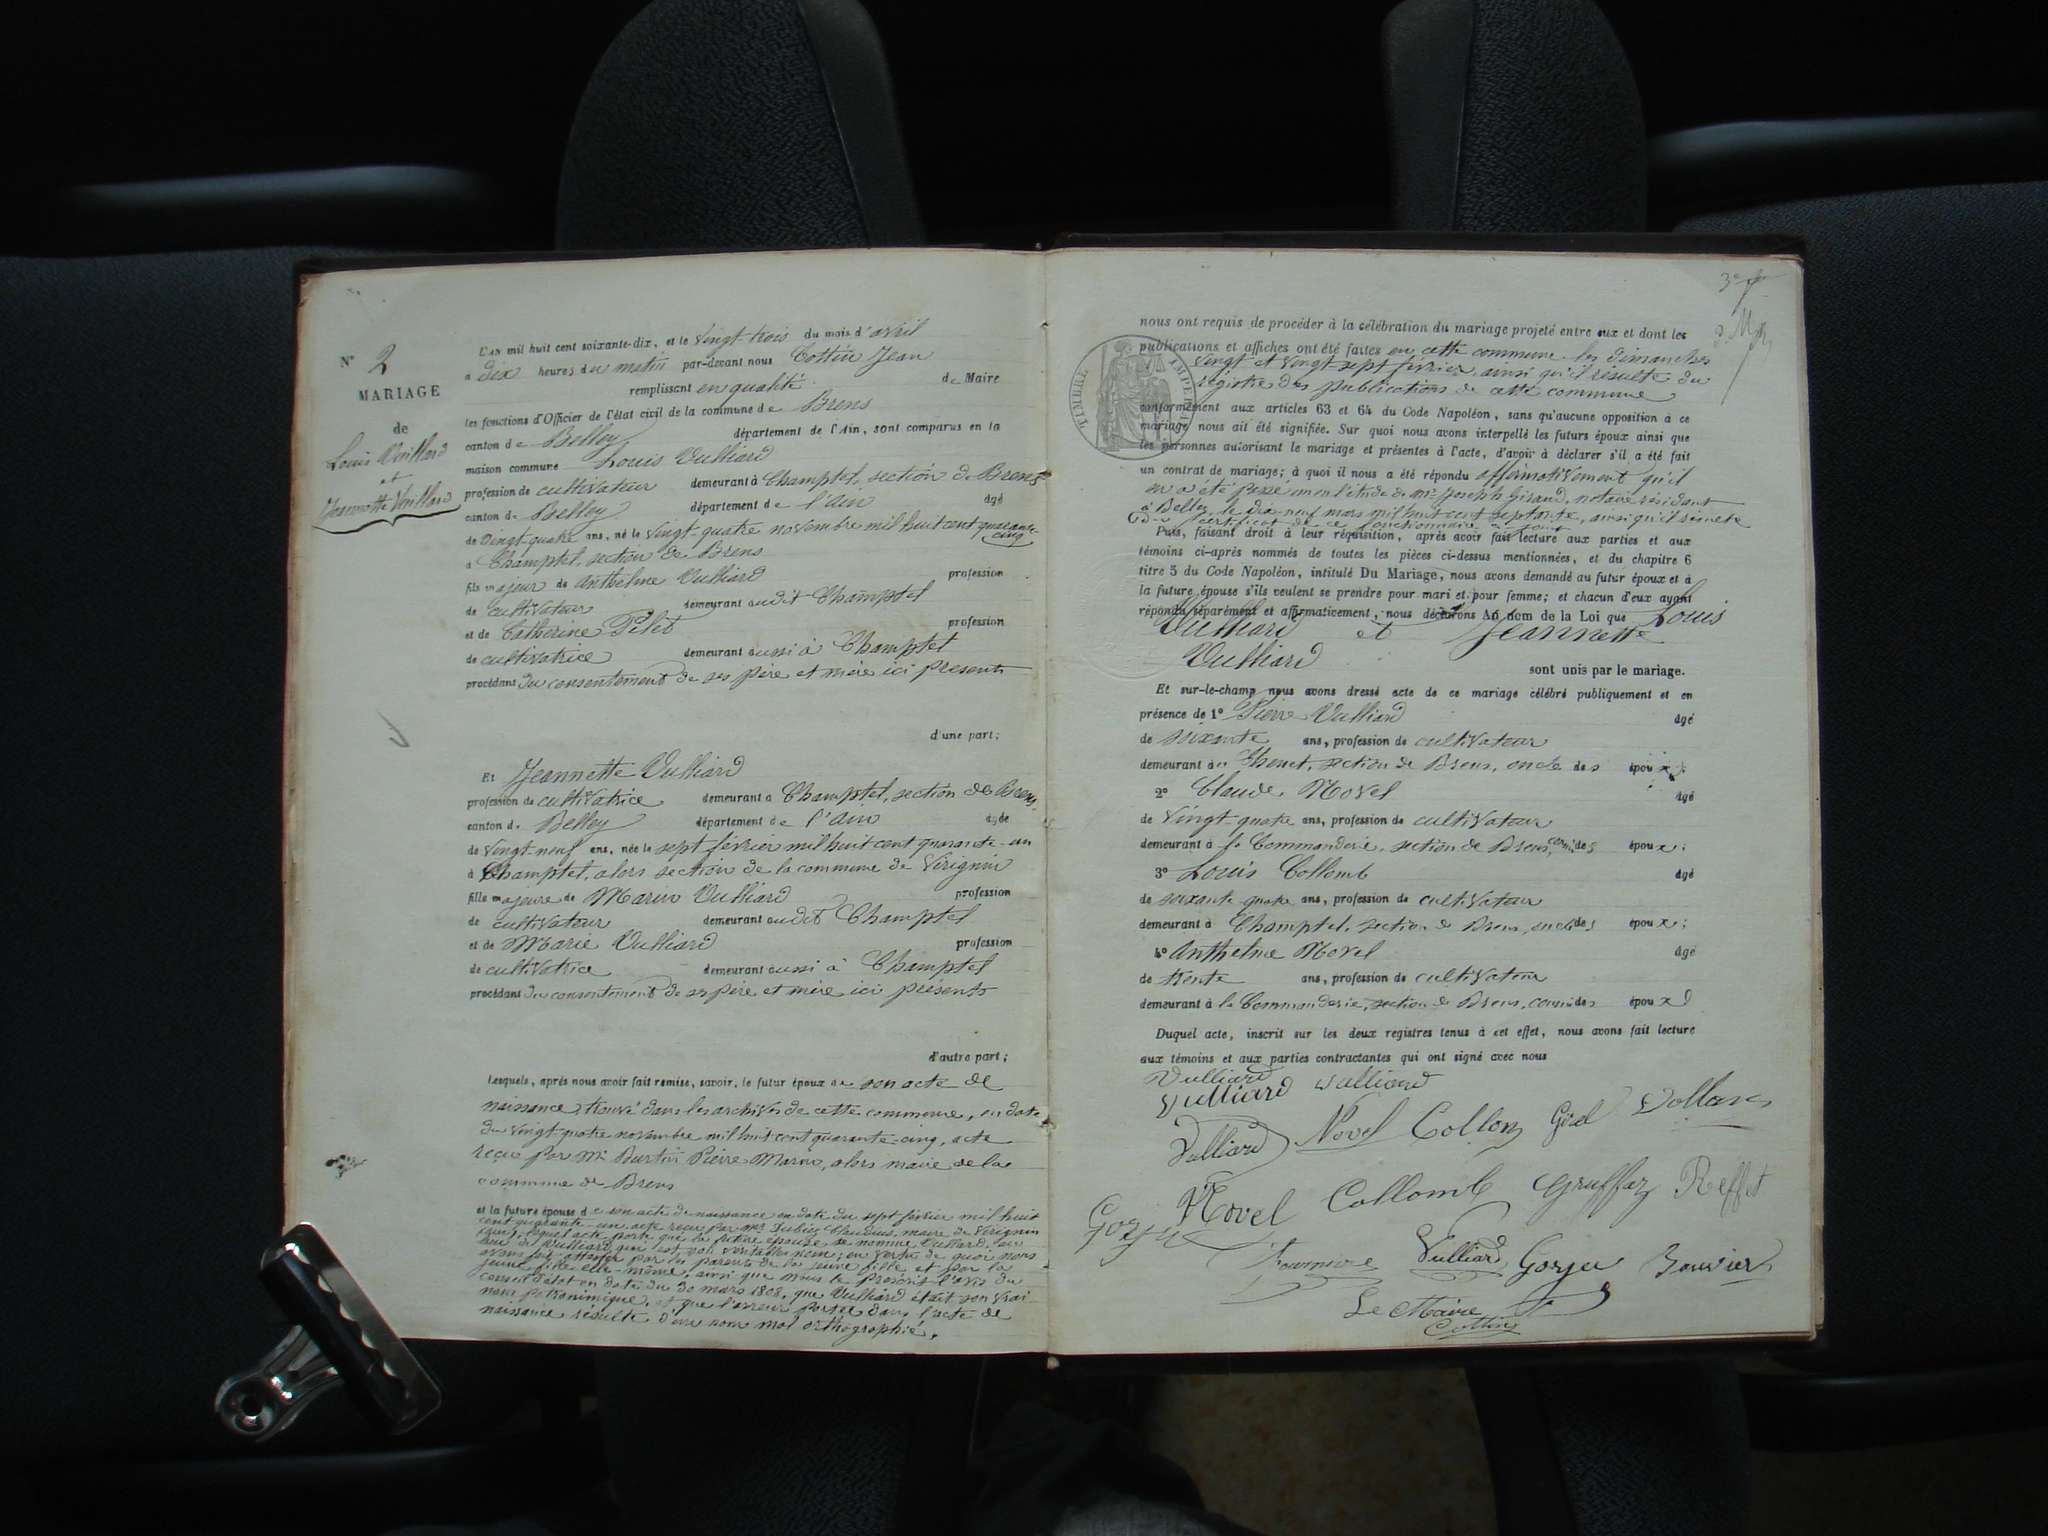 N° 2
MARIAGE
de
Louis Vuillard
et
Jeannette Vuillard
L'AN mil huit cent soixante-dix, et le Vingt-trois du mois d'avril
à dix heures du matin par-devant nous Cottin Jean
remplissant en qualité de Maire
les fonctions d'Officier de l'état civil de la commune de Brens
canton de Belley département de l'Ain, sont comparus en la
maison commune Louis Vulliard
profession de cultivateur demeurant à Champtel, section de Brens
canton de Belley département de l'Ain âgé
de Vingt-quatre ans, né le Vingt-quatre novembre mil huit cent quarante-
cinq
à Champtel, section de Brens
fils majeur de Anthelme Vulliard profession
de cultivateur demeurant audit Champtel
et de Catherine Pilet profession
de cultivatrice demeurant aussi à Champtel
procédant du consentement de ses père et mère ici présents
d'une part;
Et Jeannette Vulliard
profession de cultivatrice demeurant à Champtel, section de Brens,
canton de Belley département de l'Ain âgée
de Vingt-neuf ans, née le sept février mil huit cent quarante-un
à Champtel, alors section de la commune de Virignin
fille majeure de Marin Vulliard profession
de cultivateur demeurant audit Champtel
et de Marie Vulliard profession
de cultivatrice demeurant aussi à Champtel
procédant du consentement de ses père et mère ici présents
d'autre part;
Lesquels, après nous avoir fait remise, savoir, le futur époux de son acte de
naissance trouvé dans les archives de cette commune, en date
du vingt-quatre novembre mil huit cent quarante-cinq, acte
reçu par Mr Burtin Pierre Marin, alors maire de la
commune de Brens
et la future épouse de son acte de naissance en date du sept février mil huit
cent quarante-un, acte reçu par Mr Dubiez Claudius, maire de Virignin
lequel acte porte que la future épouse se nomme Vullard, au
lieu de Vulliard qui est son véritable nom; en vertu de quoi nous
avons fait attester par les parents de la jeune fille et par la
jeune fille elle-même, ainsi que nous le prescrit l'avis du
conseil d'état en date du 30 mars 1808, que Vulliard était son vrai
nom patronimique, et que l'erreur portée dans l'acte de
naissance résulte d'un nom mal orthographié.
3e
nous ont requis de procéder à la célébration du mariage projeté entre eux et dont les
publications et affiches ont été faites en cette commune les dimanches
vingt et vingt-sept février, ainsi qu'il résulte du
registre des publications de cette commune
TIMBRE IMPERIAL
conformément aux articles 63 et 64 du Code Napoléon, sans qu'aucune opposition à ce
mariage nous ait été signifiée. Sur quoi nous avons interpellé les futurs époux ainsi que
les personnes autorisant le mariage et présentes à l'acte, d'avoir à déclarer s'il a été fait
un contrat de mariage; à quoi il nous a été répondu affirmativement qu'il
en a été passé un en l'étude de Me Joseph Giraud, notaire résidant
à Belley, le dix-neuf mars mil huit cent septante, ainsi qu'il résulte
du certificat de ce fonctionnaire
Puis, faisant droit à leur réquisition, après avoir fait lecture aux parties et aux
témoins ci-après nommés de toutes les pièces ci-dessus mentionnées, et du chapitre 6
titre 5 du Code Napoléon, intitulé Du Mariage, nous avons demandé au futur époux et à
la future épouse s'ils veulent se prendre pour mari et pour femme; et chacun d'eux ayant
répondu séparément et affirmativement, nous déclarons Au nom de la Loi que Louis
Vulliard et Jeannette
Vulliard sont unis par le mariage.
Et sur-le-champ nous avons dressé acte de ce mariage célébré publiquement et en
présence de 1° Pierre Vulliard âgé
de soixante ans, profession de cultivateur
demeurant à Thouet, section de Brens, oncle des époux;
2° Claude Novel âgé
de Vingt-quatre ans, profession de cultivateur
demeurant à la Commanderie, section de Brens, cousin des époux;
3° Louis Collomb âgé
de soixante-quatre ans, profession de cultivateur
demeurant à Champtel, section de Brens, oncle des époux;
4° Anthelme Novel âgé
de trente ans, profession de cultivateur
demeurant à la Commanderie, section de Brens, cousin des époux
Duquel acte, inscrit sur les deux registres tenus à cet effet, nous avons fait lecture
aux témoins et aux parties contractantes qui ont signé avec nous
Vulliard
Vulliard Vulliard
Vulliard Novel Collon
Novel Collomb Gruffaz Reffet
Gorju
Vulliard Gorju Bouvier
Le Maire
Cottin